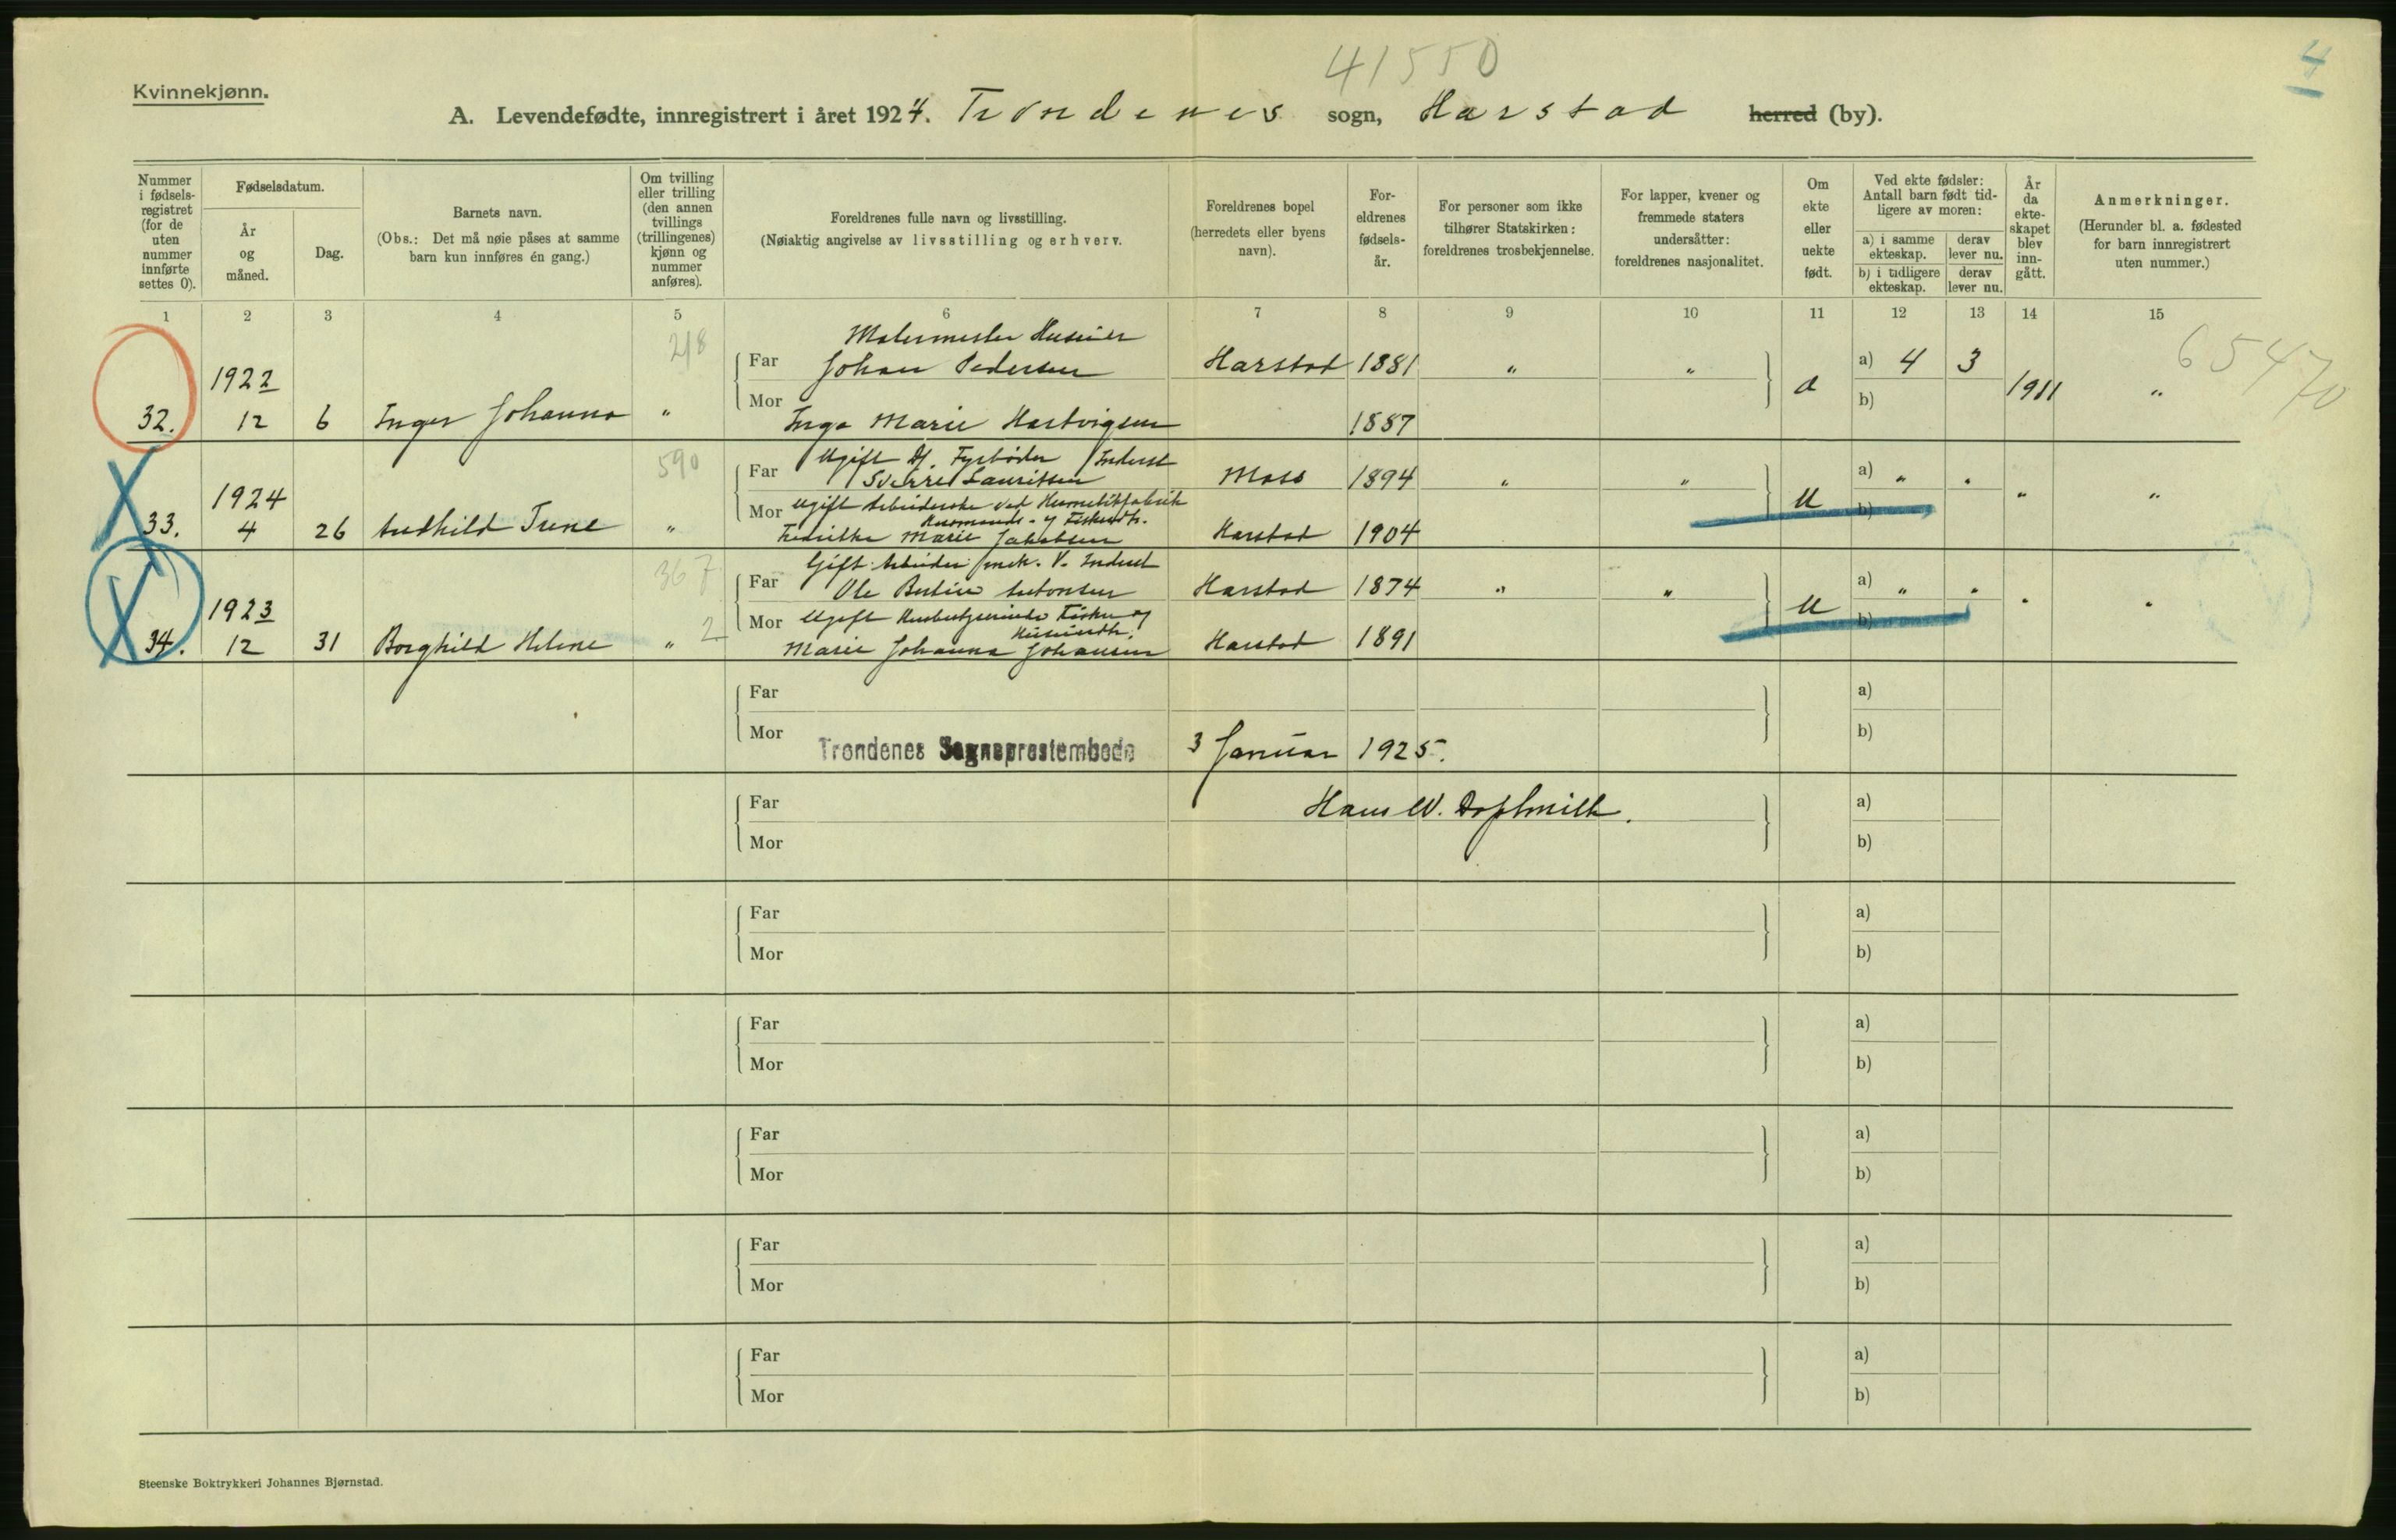 41550
4
Kvinnekjønn.
A. Levendefødte, innregistrert i året 1924. Trondenes sogn, Harstad herred (by).
Nummer i fødselsregistret (for de uten nummer innførte settes 0).
Fødselsdatum.
År og måned.
Dag.
Barnets navn.
(Obs.: Det må nøie påses at samme barn kun innføres én gang.)
Om tvilling eller trilling (den annen tvillings (trillingenes) kjønn og nummer anføres).
Foreldrenes fulle navn og livsstilling.
(Nøiaktig angivelse av livsstilling og erhverv.
Foreldrenes bopel (herredets eller byens navn).
For-eldrenes fødsels-år.
For personer som ikke tilhører Statskirken: foreldrenes trosbekjennelse.
For lapper, kvener og fremmede staters undersåtter: foreldrenes nasjonalitet.
Om ekte eller uekte født.
Ved ekte fødsler: Antall barn født tid-ligere av moren:
a) i samme ekteskap.
derav lever nu.
b) i tidligere ekteskap.
derav lever nu.
År da ekte-skapet blev inn-gått.
Anmerkninger.
(Herunder bl. a. fødested for barn innregistrert uten nummer.)
1 2 3 4 5 6 7 8 9 10 11 12 13 14 15
218
Malermester Huseier
Far Johan Pedersen Harstad 1881 " " a) 4 3 65470
1922
Mor b) 1911 "
32. 12 6 Inger Johanna " Inga Marie Hartvigsen 1887
590
Ugift Df. Fyrbøder Inderst
Far Sverre Lauritsen Moss 1894 " " a) " "
1924
Mor Ugift Arbeiderske ved Hermetikfabrik U b) " "
33. 4 26 Audhild Tune " Fredrikke Marie Jakobsen Harstad 1904
367
Gift Arbeider mek. V. Inderst
Far Ole Bertin Antonsen Harstad 1874 " " a) " "
1923
Mor Ugift Fisker og U b) " "
34. 12 31 Borghild Helene " 2 Marie Johanna Johansen Harstad 1891
Far a)
Mor b)
Trondenes Sogneprestembede 3 Januar 1925.
Far Hans W. a)
Mor b)
Far a)
Mor b)
Far a)
Mor b)
Far a)
Mor b)
Far a)
Mor b)
Far a)
Mor b)
Steenske Boktrykkeri Johannes Bjørnstad.